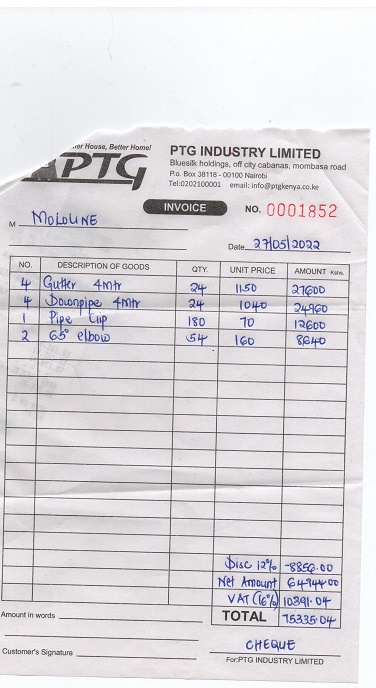 er House, Better Home!
PTG
PTG INDUSTRY LIMITED
Bluesilk holdings, off city cabanas, mombasa road
P.o. Box 38118 - 00100 Nairobi
Tel:0202100001 email: info@ptgkenya.co.ke
INVOICE NO. 0001852
M MOLOLINE
Date 27/05/2022
NO. DESCRIPTION OF GOODS QTY. UNIT PRICE AMOUNT Kshs.
4 Gutter 4mtr 24 1150 27600
4 Downpipe 4mtr 24 1040 24960
1 Pipe Clip 180 70 12600
2 65° elbow 54 160 8640
Disc 12% -8856.00
Net Amount 64944.00
VAT (16%) 10391.04
TOTAL 75335.04
Amount in words
CHEQUE
Customer's Signature
For:PTG INDUSTRY LIMITED